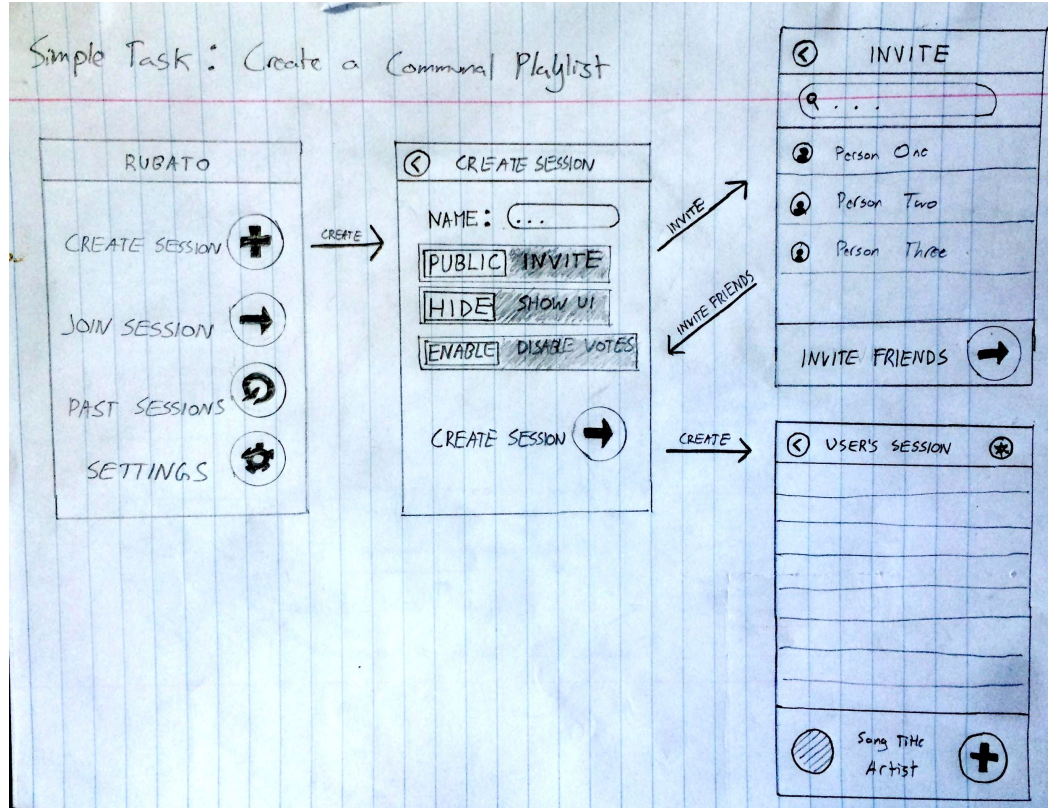 Simple Task: Create a Communal Playlist
RUBATO
CREATE SESSION
JOIN SESSION
PAST SESSIONS
SETTINGS
CREATE
CREATE SESSION
NAME: ...
PUBLIC INVITE
HIDE SHOW UI
ENABLE DISABLE VOTES
CREATE SESSION
INVITE
INVITE FRIENDS
CREATE
INVITE
...
Person One
Person Two
Person Three
INVITE FRIENDS
USER'S SESSION
Song Title
Artist